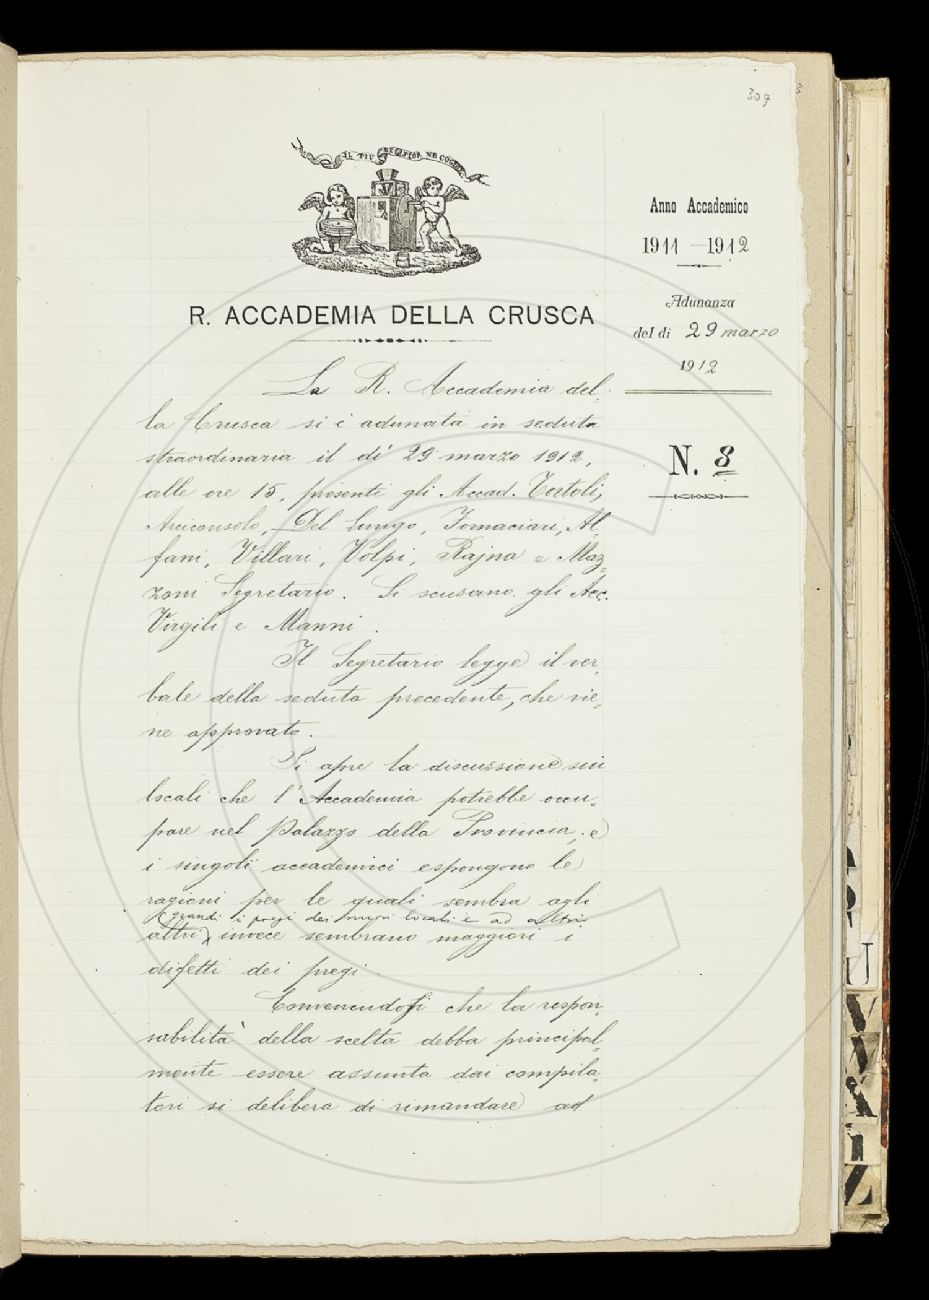 309
IL PIÙ BEL FIOR NE COGLIE
R. ACCADEMIA DELLA CRUSCA
Anno Accademico
1911 – 1912
Adunanza
del dì 29 marzo
1912
N. 8
La R. Accademia del-
la Crusca si è adunata in seduta
straordinaria il dì 29 marzo 1912,
alle ore 15, presenti gli Accad. Tortoli,
Arciconsolo, Del Lungo, Fornaciari, Al-
fani, Villari, Volpi, Rajna e Maz-
zoni Segretario. Si scusano gli Acc.
Virgili e Manni.
Il Segretario legge il ver-
bale della seduta precedente, che vie-
ne approvato.
Si apre la discussione sui
locali che l'Accademia potrebbe occu-
pare nel Palazzo della Provincia; e
i singoli accademici espongono le
ragioni per le quali sembra agli
grandi i pregi dei nuovi locali e ad altri
altri invece sembrano maggiori i
difetti dei pregi.
Convenendosi che la respon-
sabilità della scelta debba principal-
mente essere assunta dai compila-
tori si delibera di rimandare ad
U
V
X
Z